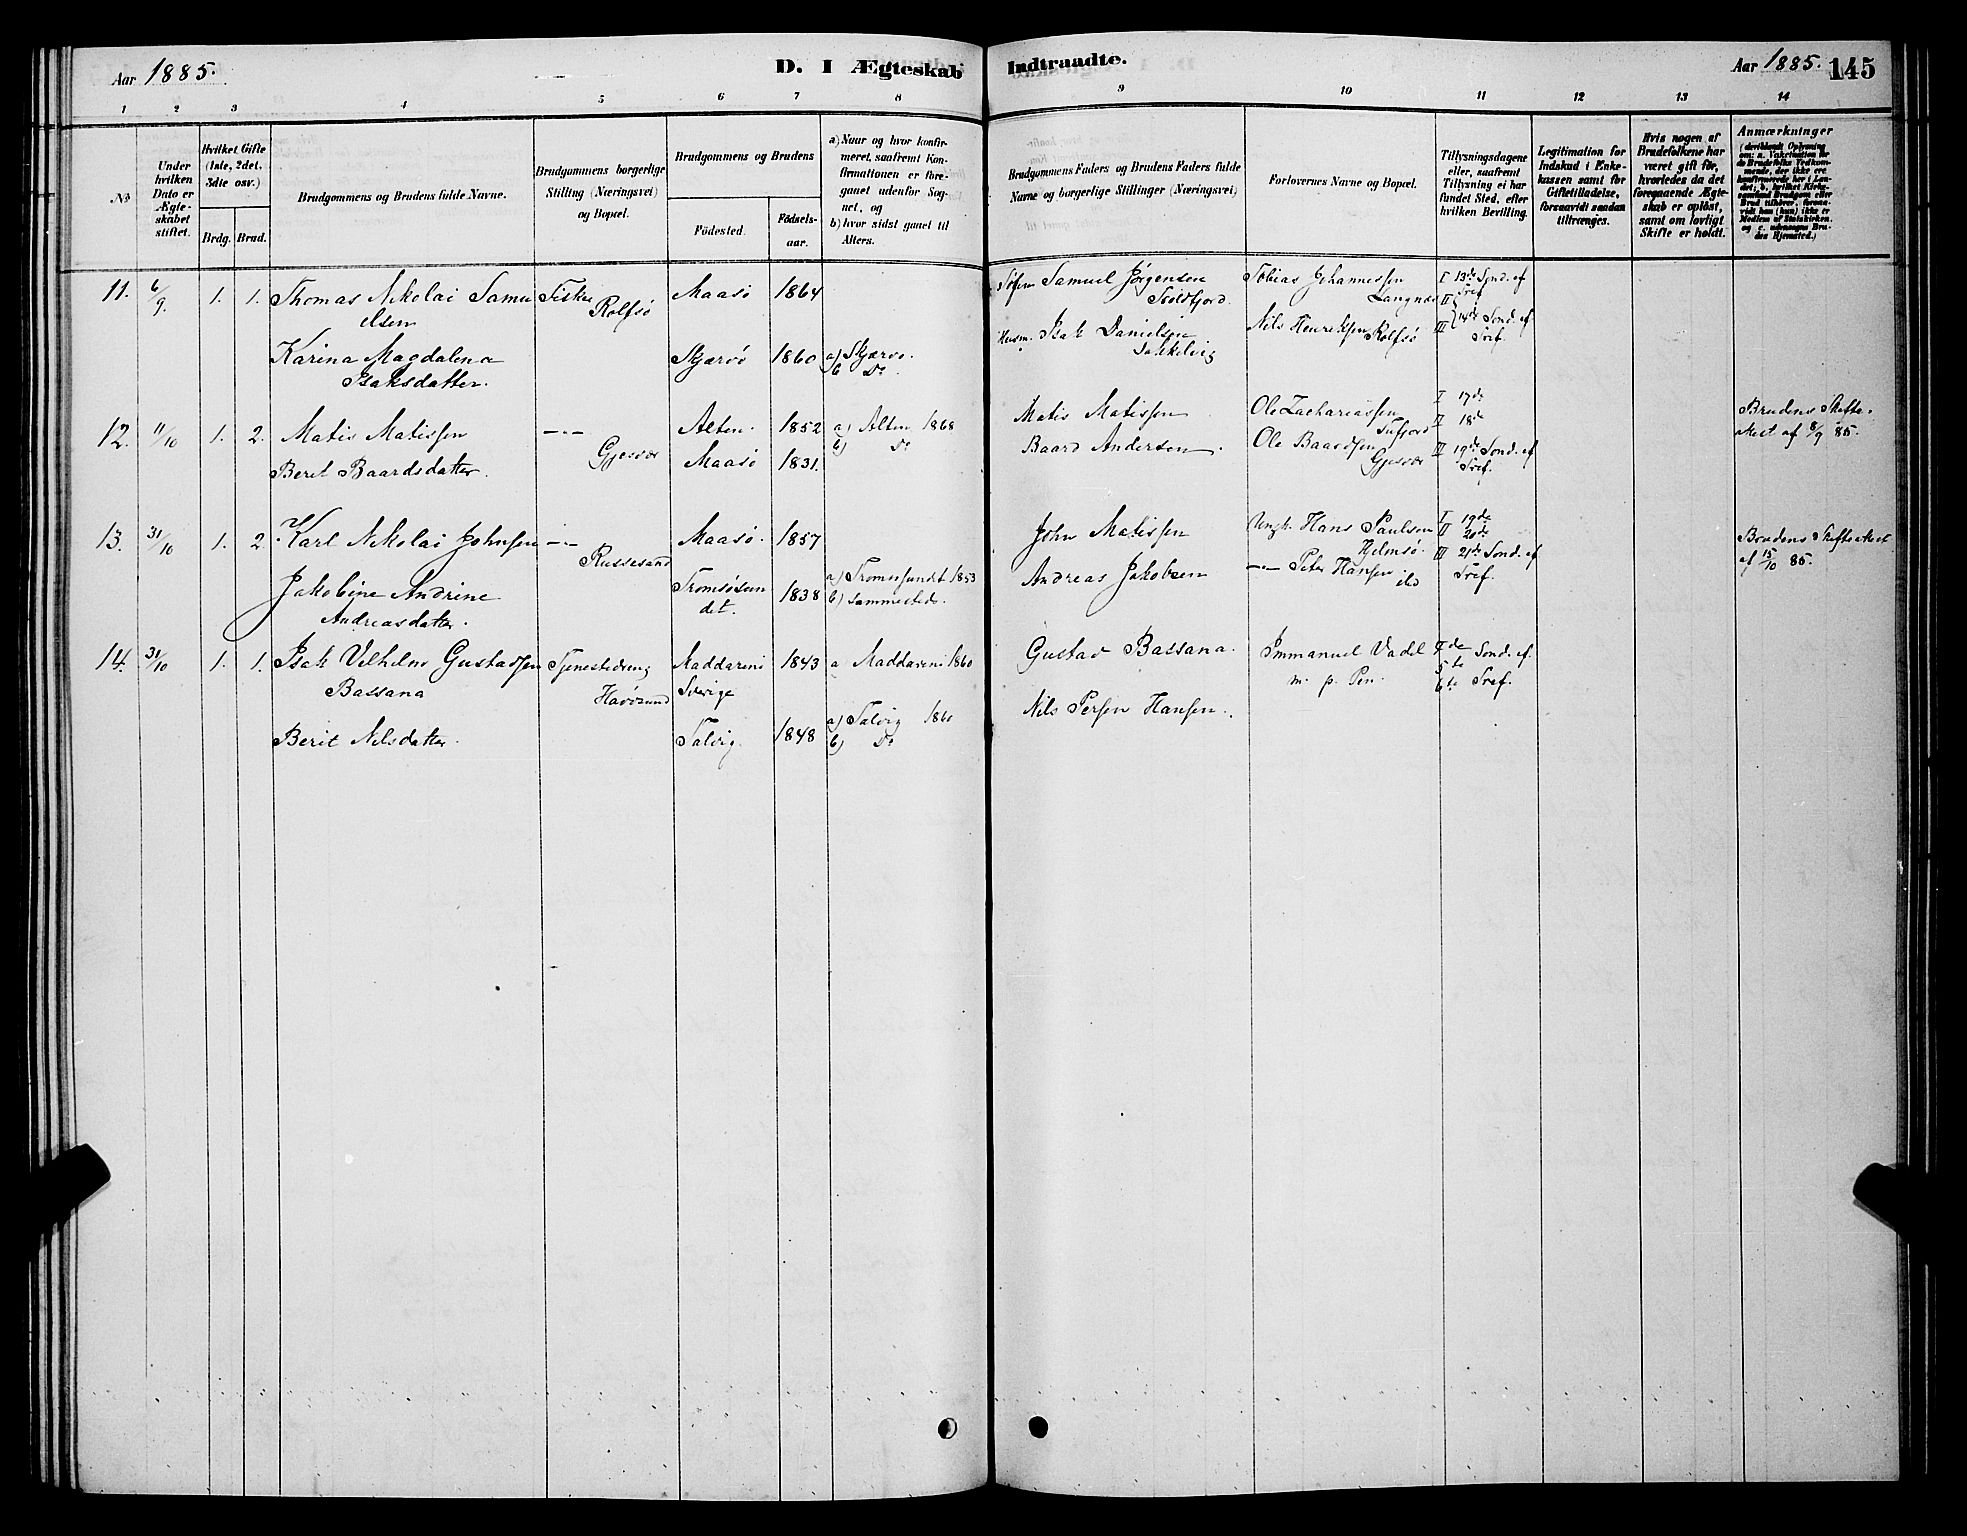 Aar 1885.
D. I Ægteskab Indtraadte.
Aar 1885. 145
1 2 3 4 5 6 7 8 9 10 11 12 13 14
No
Under hvilken Dato er Ægteskabet stiftet.
Hvilket Gifte (1ste, 2det, 3die osv.)
Brdg. Brud.
Brudgommens og Brudens fulde Navne.
Brudgommens borgerlige Stilling (Næringsvei) og Bopæl.
Brudgommens og Brudens
Födested. Födselsaar.
a) Naar og hvor konfirmeret, saafremt Konfirmationen er foregaaet udenfor Sognet, og
b) hvor sidst gaaet til Alters.
Brudgommens Faders og Brudens Faders fulde Navne og borgerlige Stillinger (Næringsvei)
Forlovernes Navne og Bopæl.
Tillysningsdagene eller, saafremt Tillysning ei har fundet Sted, efter hvilken Bevilling.
Legitimation for Indskud i Enkekassen samt for Giftetilladelse, forsaavidt saadan tiltrænges.
Hvis nogen af Brudefolkene har været gift för, hvorledes da det foregaaende Ægteskab er oplöst, samt om lovligt Skifte er holdt.
Anmærkninger
11. 6/9. 1. 1. Thomas Nikolai Samuelsen Fisker Rolfsö Maasö 1864
Samuel Jörgensen Troldfjord. Tobias Johannessen Langnæs I 13de Sond. ef Tref
II III 14de Sond. ef Tref.
Karina Magdalena Isaksdatter. Skjærvö 1860 a) Skjærvö. b Do.
Husm. Isak Danielsen Nils Henriksen Rolfsö
12. 11/10 1. 2. Matis Matissen —"— Gjesvær Alten. 1852 a) Alten 1868 b) Do
Matis Matissen Ole Zachariassen Tufjord I 17de
II 18de
Berit Baardsdatter. Maasö 1831.
Baard Andersen. Ole Baardsen Gjesvær III 19de Sond. ef Tref.
Brudens Skifteattest af 8/9 85.
13. 31/10 1. 2. Karl Nikolai Johnsen —"— Russesund Maasö. 1857
John Matissen Ungk. Hans Paulsen Hjelmsö. I 19de
II 20de
III 21de Sond. ef Tref.
Jakobine Andrine Andreasdatter. Tromsösundet. 1838 a) Tromsösundet 1853 b) sammesteds.
Andreas Jakobsen —"— Peter Hansen ibd
Brudens Skifteattest af 15/10 85.
14. 31/10 1. 1. Isak Vilhelm Gustavsen Bassana Tjenestedreng Havösund Maddareni Sverige 1843 a Maddareni 1860
Gustav Bassana. Immanuel Vadel m. p. Pen.
5te 6te Sond. ef. Tref.
Berit Nilsdatter. Talvig. 1848 a) Talvig 1860 b) Do
Nils Persen Hansen.